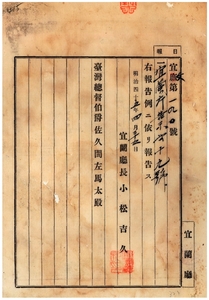 報 日
宜庶第一九〇號
一宜蘭廳告示第二十九號
右報告例ニ依リ報告ス
明治四十五年四月
宜蘭廳長 小松吉久
臺灣總督伯爵佐久間左馬太殿
宜蘭廳